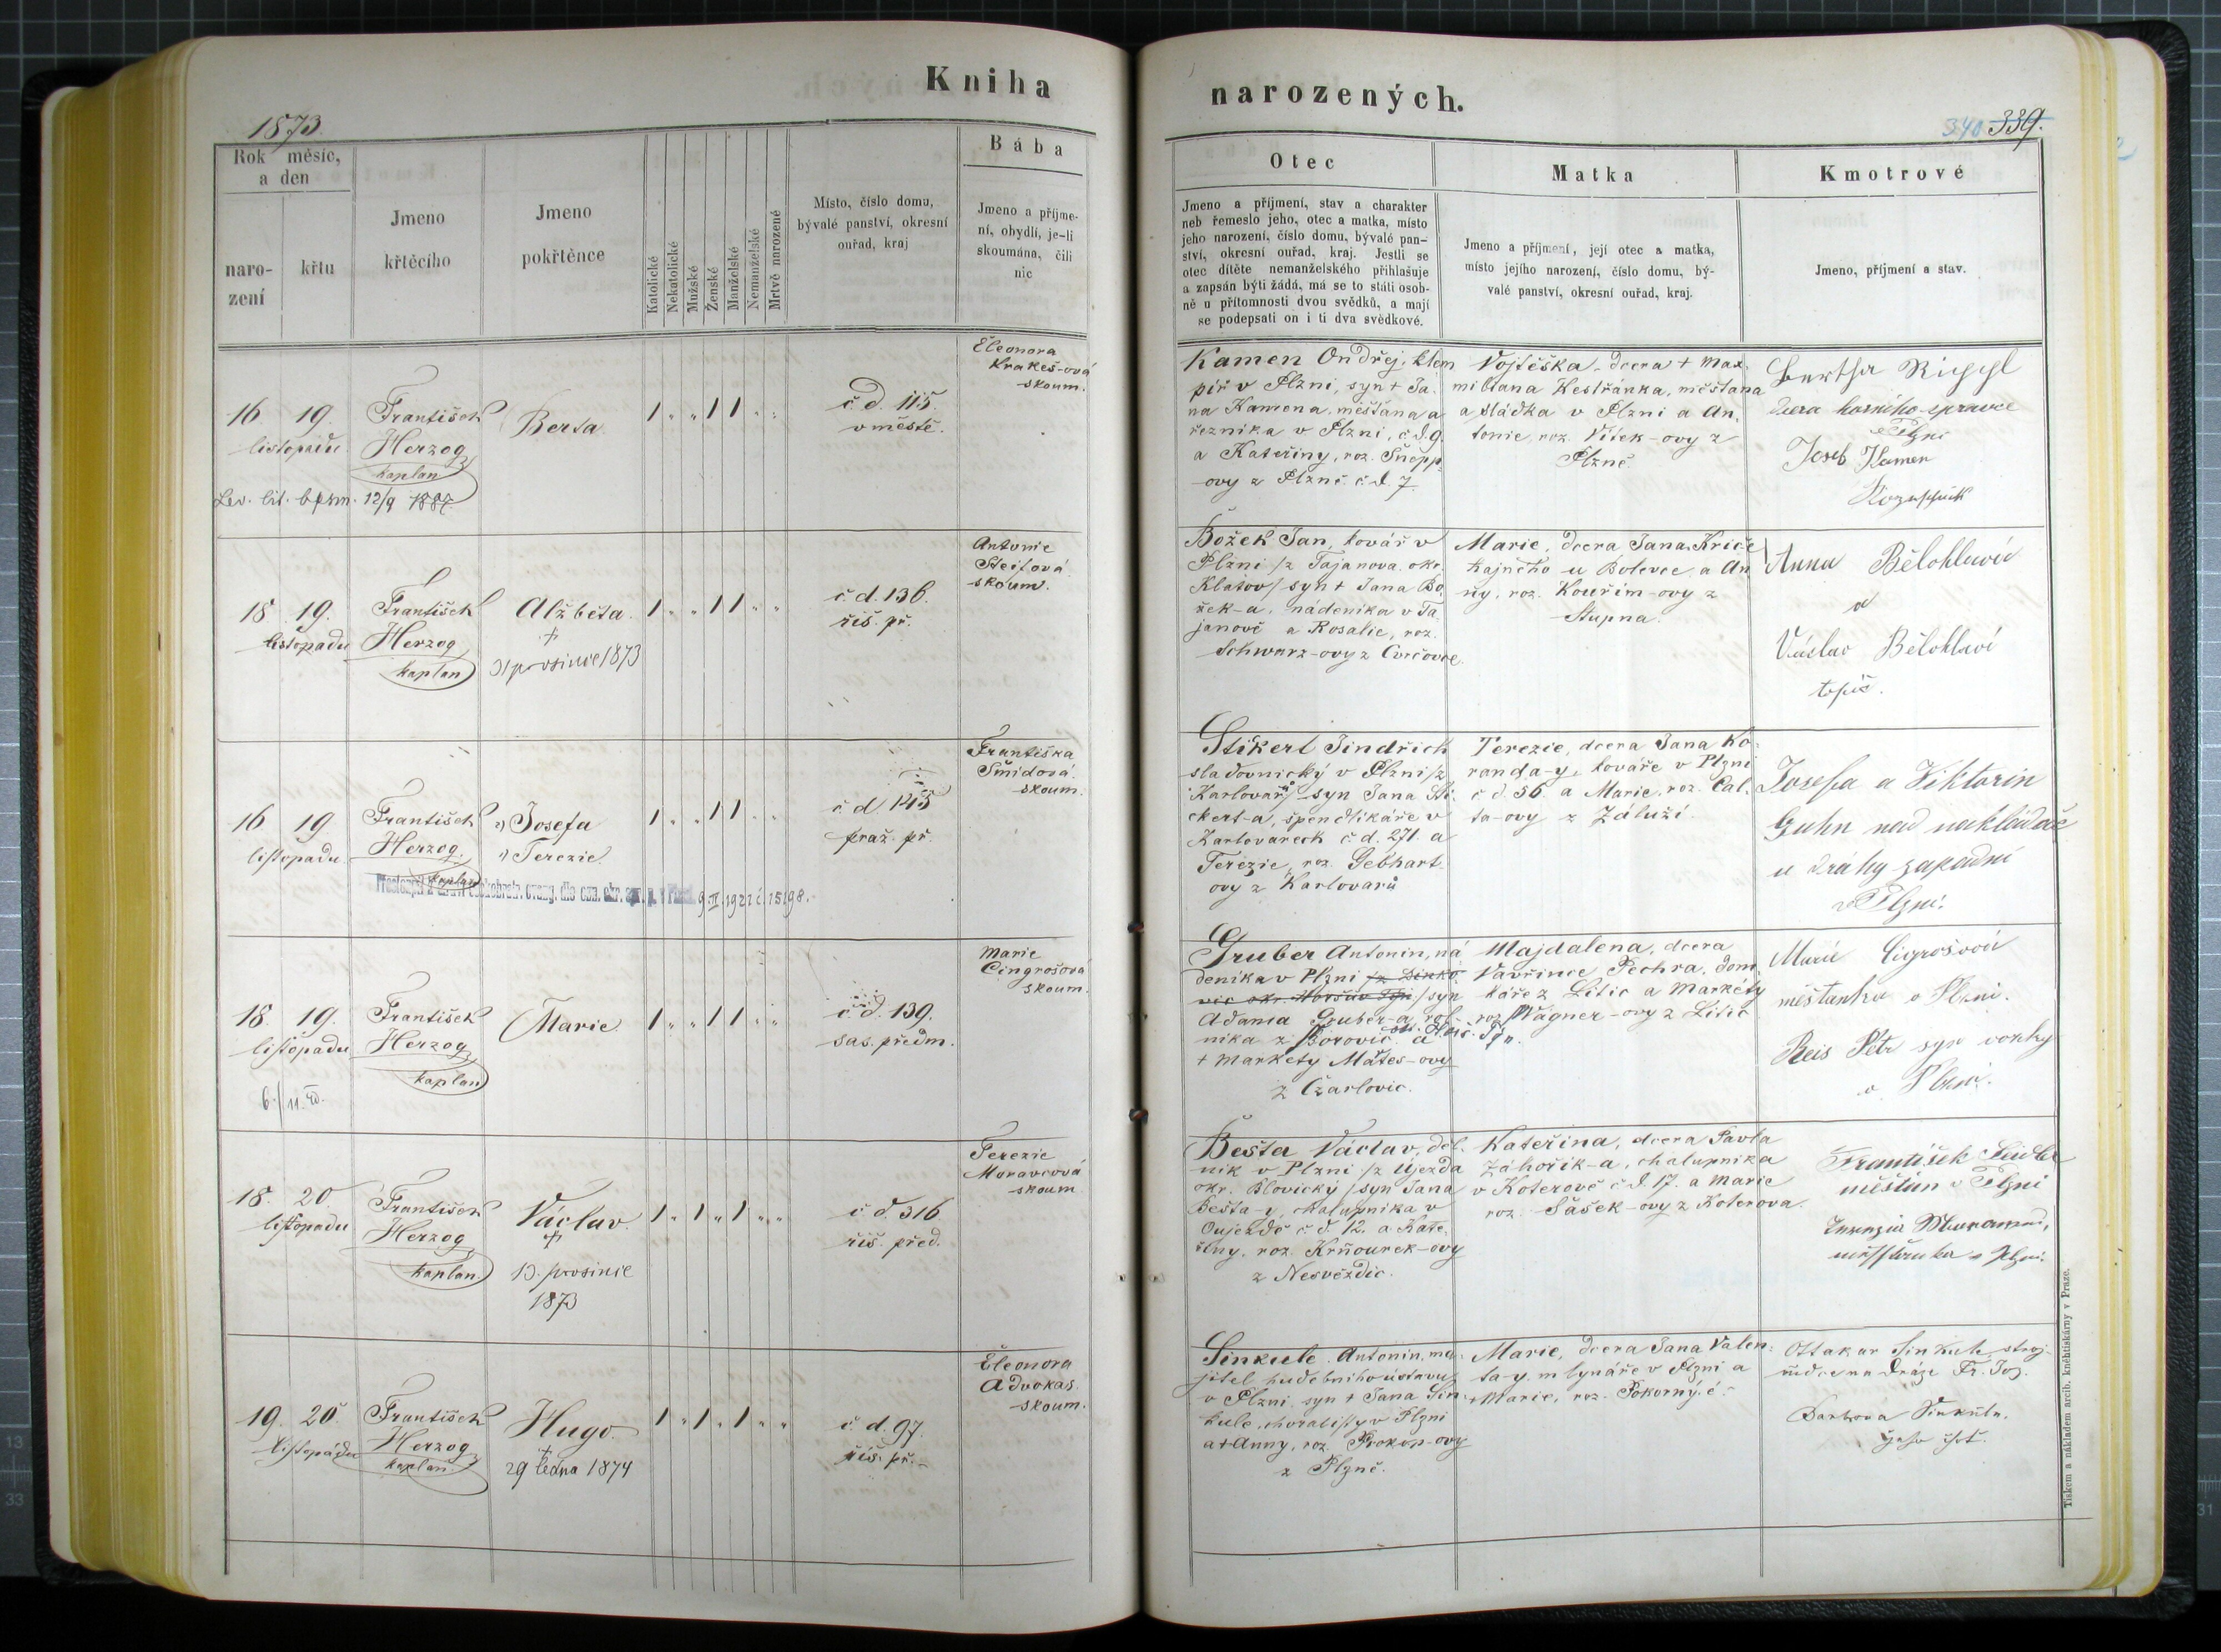 Kniha
narozených.
1873
340 339.
Rok měsíc, a den
naro-
zení
křtu
Jmeno
křtěcího
Jmeno
pokřtěnce
Katolické
Nekatolické
Mužské
Ženské
Manželské
Nemanželské
Mrtvě narozené
Místo, číslo domu,
bývalé panství, okresní
ouřad, kraj
Bába
Jmeno a příjme-
ní, obydlí, je-li
skoumána, čili
nic
Otec
Jmeno a příjmení, stav a charakter
neb řemeslo jeho, otec a matka, místo
jeho narození, číslo domu, bývalé pan-
ství, okresní ouřad, kraj. Jestli se
otec dítěte nemanželského přihlašuje
a zapsán býti žádá, má se to státi osob-
ně u přítomnosti dvou svědků, a mají
se podepsati on i ti dva svědkové.
Matka
Jmeno a příjmení, její otec a matka,
místo jejího narození, číslo domu, bý-
valé panství, okresní ouřad, kraj.
Kmotrové
Jmeno, příjmení a stav.
16 19.
listopadu
František
Herzog
kaplan
Berta
1 " " 1 1 " "
č. d. 115.
v městě.
Eleonora
Krakeš-ová
skoum.
12/9 1887
Kamen Ondřej, klem
píř v Plzni, syn + Ja.
na Kamena, měšťana a
řezníka v Plzni, č. d. 9.
a Kateřiny, roz. Šnopp
-ovy z Plzně č. d. 7.
Vojtěška, dcera + Max.
miliana Kestřánka, měšťana
a sládka v Plzni a An.
tonie, roz. Vítek-ovy z
Plzně.
dcera horního správce
v Plzni
Josef Kamen
18 19.
listopadu
František
Herzog
kaplan
Alžběta.
+
31 prosince 1873
1 " " 1 1 " "
č. d. 136.
říš. př.
Antonie
Steifová
skoum.
Božek Jan, kovář v
Plzni /z Tajanova, okr.
Klatov/ syn + Jana Bo
žek-a, nádeníka v Ta
janově a Rosalie, roz.
Schwarz-ovy z Cvrčovce.
Marie, dcera Jana Kříče
hajného u Bolevce a An
ny, roz. Kouřim-ovy z
Stupna.
Anna Bělohlavá
a
Václav Bělohlavý
topič.
16 19
listopadu
František
Herzog.
kaplan
2) Josefa
1) Terezie
1 " " 1 1 " "
č. d. 145
praž. př.
Františka
Šmidová
skoum.
9. II. 1921 č. 15198.
Stikert Jindřich
sladovnický v Plzni /z
Karlovar/ syn Jana Sti.
ckert-a, špendlíkáře v
Karlovarech č. d. 271. a
Terezie, roz. Gebhart-
ovy z Karlovarů
Terezie, dcera Jana Ko-
randa-y, kováře v Plzni
č. d. 56. a Marie, roz. Cal.
ta-ovy z Záluží.
Josefa a Viktorin
Guhn nad nakládač
u dráhy západní
v Plzni.
18. 19.
listopadu
František
Herzog
kaplan
Marie.
1 " " 1 1 " "
č. d. 139.
sas. předm.
Marie
Cingrošová
skoum.
Gruber Antonin, ná
deník v Plzni
/syn
Adama Gruber-a, rol-
níka z Borovic a
+ Markéty Mates-ovy
z Čzarlovic.
Majdalena, dcera
Vavřince Pechra, dom
káře z Litic a Markéty
roz. Wagner-ovy z Litic
Marie Cigrošová
měšťanka v Plzni.
Reis Petr syn
v Plzni.
18. 20
listopadu
František
Herzog
kaplan
Václav.
+
13. prosince
1873
1 " 1 " 1 " "
č. d. 316.
říš. před.
Terezie
Moravcová
skoum
Bešta Václav, děl.
ník v Plzni /z Újezda
okr. Blovický/ syn Jana
Bešta-y, chalupníka v
Oujezdě č. d. 12. a Kate.
řiny, roz. Krňourek-ovy
z Nesvěždic.
Kateřina, dcera Pavla
Záhořík-a, chalupníka
v Koterově č. d. 17. a Marie
roz. Šašek-ovy z Koterova.
František
měšťan v Plzni
19. 20.
listopadu
František
Herzog
kaplan.
Hugo.
+
29 ledna 1874
1 " 1 " 1 " "
č. d. 97.
říš. př.
Eleonora
Advokas.
skoum.
Sinkule Antonin, ma-
jitel hudebního ústavu
v Plzni, syn + Jana Sin-
kule, choralisty v Plzni
a + Anny, roz. Prokop-ovy
z Plzně.
Marie, dcera Jana Valen-
ta-y, mlynáře v Plzni a
+ Marie, roz. Pokorný-é.
Ottakar Sinkule, stroj-
Fr. Jos.
Barbora Sinkule,
Tiskem a nákladem arcib. kněhtiskárny v Praze.